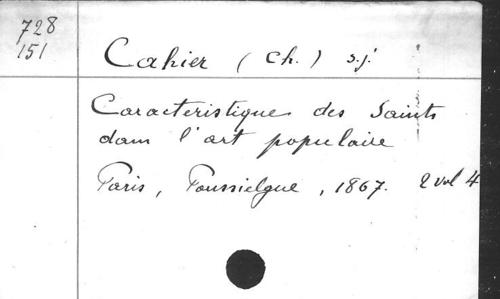 728
151
Cahier (Ch.) s.j.
Caracteristique des Saints
dans l'art populaire
Paris, Poussielgue, 1867. 2 vol 4